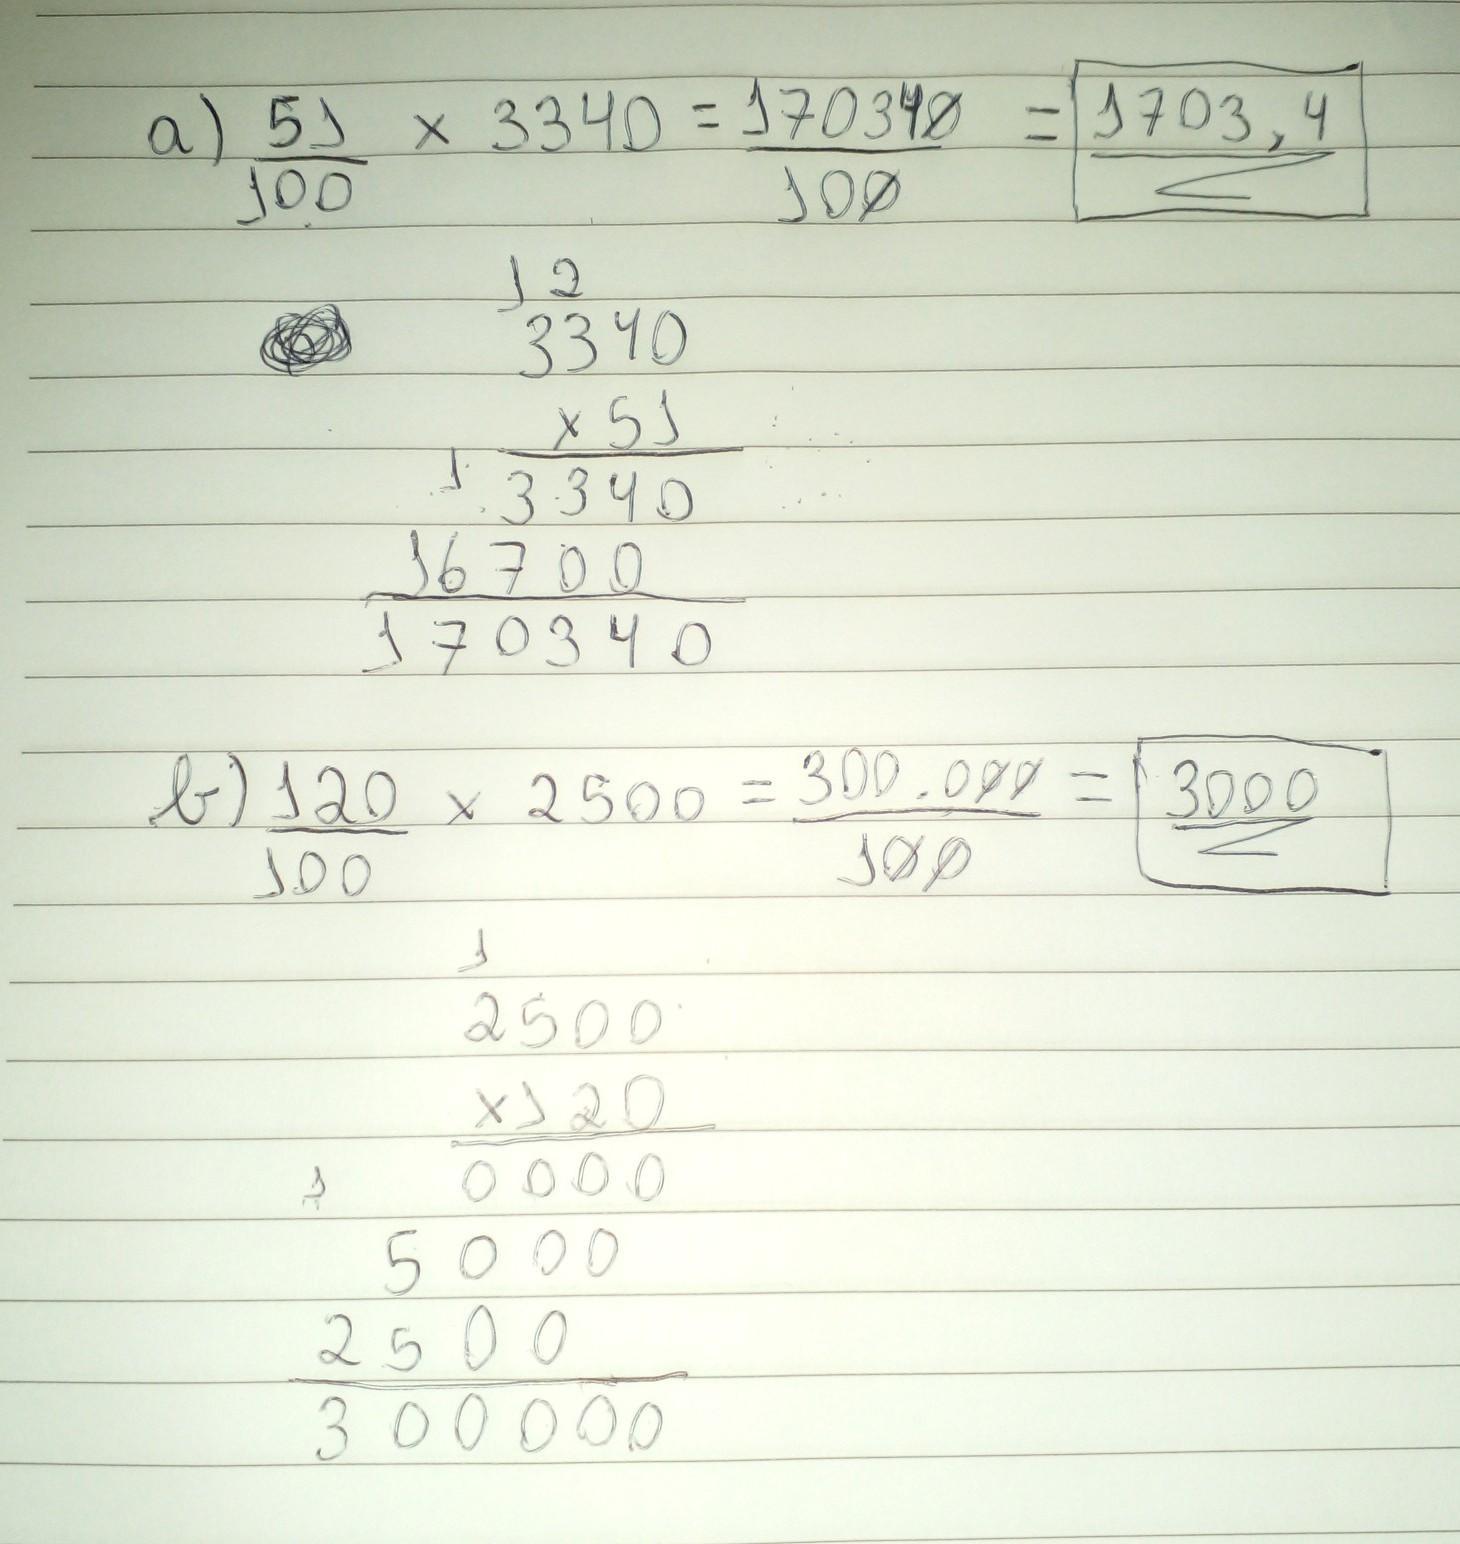 a) 51/100 x 3340 = 170340/100 = 1703,4
12
3340
x 51
1
3340
16700
170340
b) 120/100 x 2500 = 300.000/100 = 3000
1
2500
x120
1
0000
5000
2500
300000